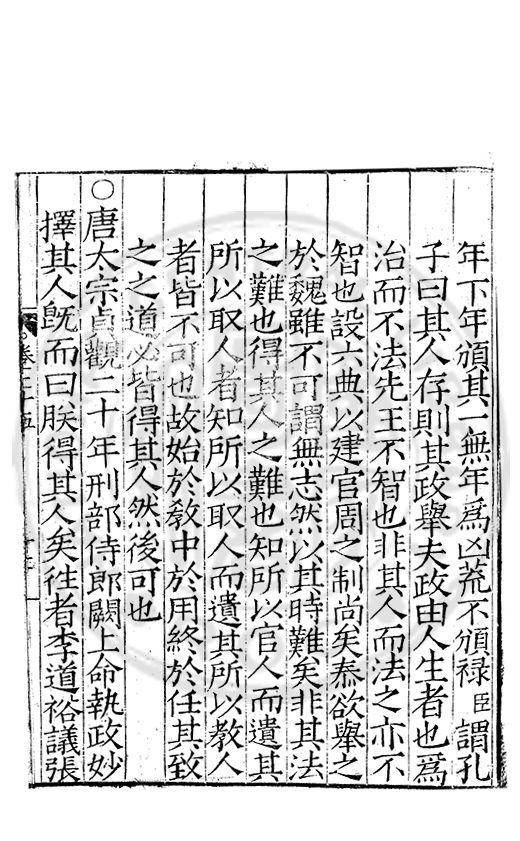 年下年頒其一無年爲凶荒不頒禄臣謂孔
子曰其人存則其政舉夫政由人生者也爲
治而不法先王不智也非其人而法之亦不
智也設六典以建官周之制尚矣泰欲舉之
於魏雖不可謂無志然以其時難矣非其法
之難也得其人之難也知所以官人而遺其
所以取人者知所以取人而遺其所以教人
者皆不可也故始於教中於用終於任其致
之之道必皆得其人然後可也
○唐太宗貞觀二十年刑部侍郎闕上命執政妙
擇其人旣而曰朕得其人矣往者李道裕議張
卷二十五